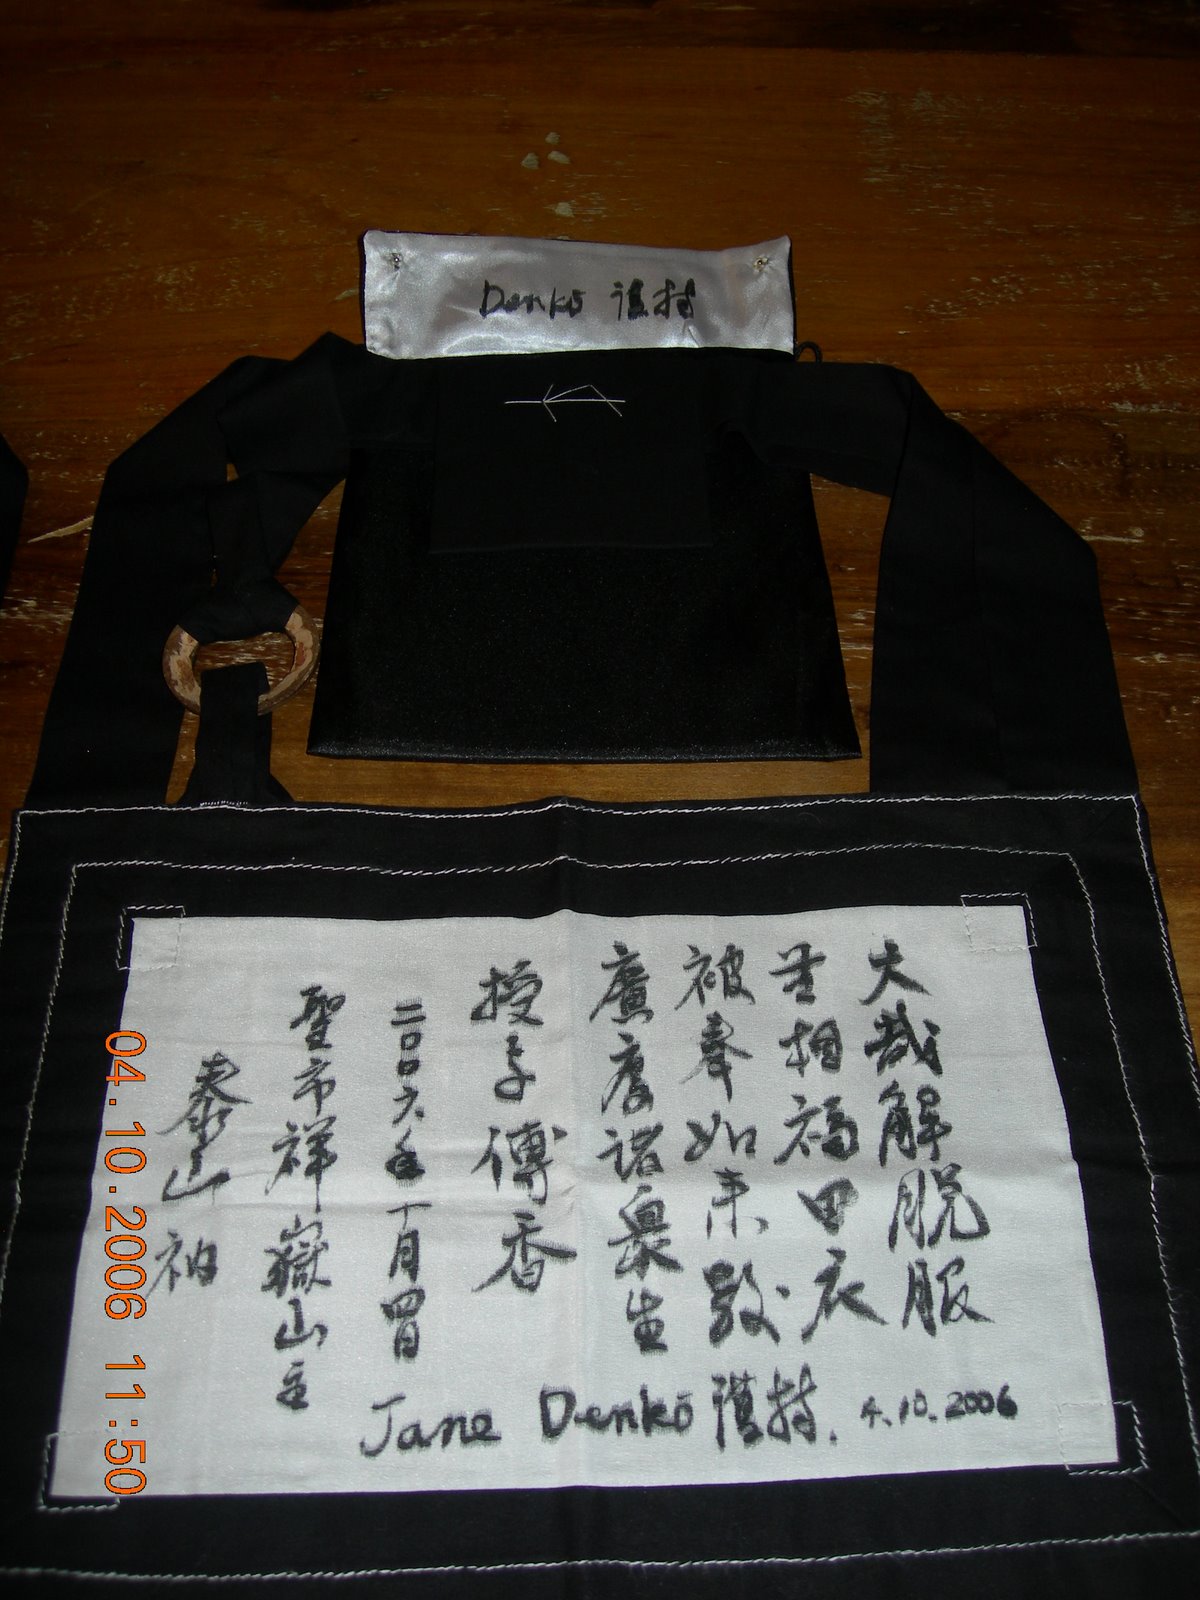 Denkō 護持
大哉解脱服
無相福田衣
被奉如来教
廣度諸衆生
授与傳香
二〇〇六年十月四日
聖市祥嶽山主
泰山衲
Jane Denkō 護持. 4.10.2006
04.10.2006 11:50